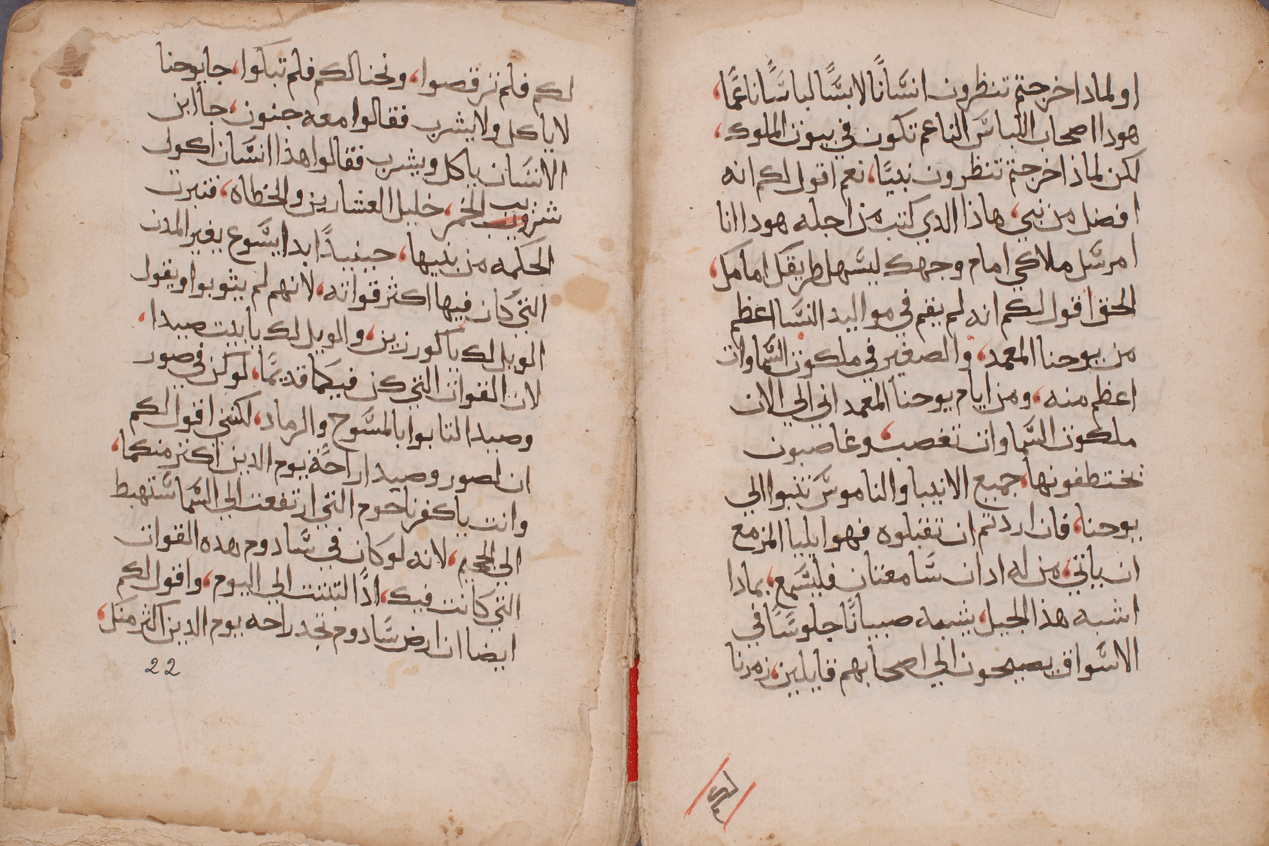 او لمادا اخرجتم تنظرون انسَّانًا لابسًّا لباسًّا ناعمًا،
هودا اصحاب اللباسَ الناعم تكون في بيوت الملوك،
لكن لماذا خرجتم تنظرون نبيًا، نعم اقول لكم انه
افضل من نبي، هاذا الدي كتب من اجله هودا انا
امرسَّل ملاكي امام وجهك ليسَّهل طريقك امامك،
الحق اقول لكم انه لم يقم في مواليد النسَّا اعظم
من يوحنا المعمد، والصغير في ملكوت السَّماوات
اعظم منه، ومن ايام يوحنا المعمداني الي الان
ملكوت السَّماوات تغصب، وغاصبون
تختطفونها، جميع الانبيا والناموسَ تنبوا الي
يوحنا، فان اردتم ان تقبلوه فهو ايليا المزمع
ان ياتي، من له ادان سَّامعتان فليسَّمع، بمادا
اشبه هذا الجيل، يشبه صبيانًا جلوسًَا في
الاسَّواق يصيحون الي اصحابهم قايلين، زمرنا
لكم
لكم فلم ترقصوا، ونحنا لكم فلم تبكوا، جا يوحنا
لا ياكل ولا يشرب فقالوا معه جنون، جا ابن
الانسَّان ياكل ويشرب فقالوا هذا انسَّان اكول
شروب الخمر، خليل العشارين والخطاه، فتبرت
الحكمه من بنيها، حينيدًا ابدا ايسَّوع يعير المدن
التي كان فيها اكتر قواته، لانهم لم يتوبوا ويقول
الويل لك يا كورزين، والويل لك يا بيت صيدا،
لان القوات التي كن فيكما قديمًا، لو كن في صور
وصيدا لتابوا بالمسَّوح والرماد، لكنني اقول لكم
ان لصور وصيدا راحةً يوم الدين اكتر منكما،
وانت يا كفرناحوم التي ارتفعت الي السَّما سَّتهبط
الي الجحيم، لانه لو كان في سَّادوم هده القوات
التي كانت فيك، اذًا لتبتت الي اليوم، واقول لكم
ايضا ان ارض سَّادوم تجد راحه يوم الدين اكثر منك،
22